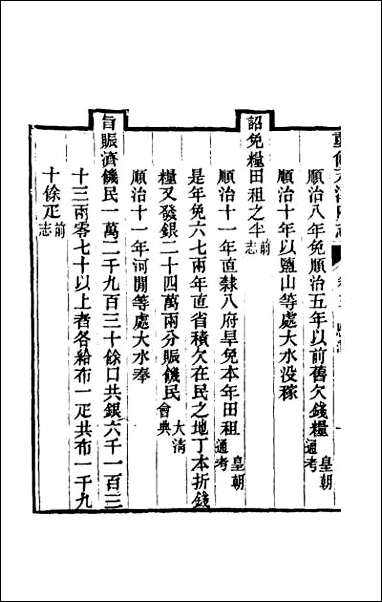 重修天津府志
順治八年免順治五年以前舊欠錢糧皇朝通考
順治十年以鹽山等處大水没稼
詔免糧田租之半前志
順治十一年直隸八府旱免本年田租皇朝通考
是年免六七兩年直省積欠在民之地丁本折錢
糧又發銀二十四萬兩分賑饑民大清會典
順治十一年河間等處大水奉
旨賑濟饑民一萬二千九百三十餘口共銀六千一百三
十三兩零七十以上者各給布一疋共布一千九
十餘疋前志